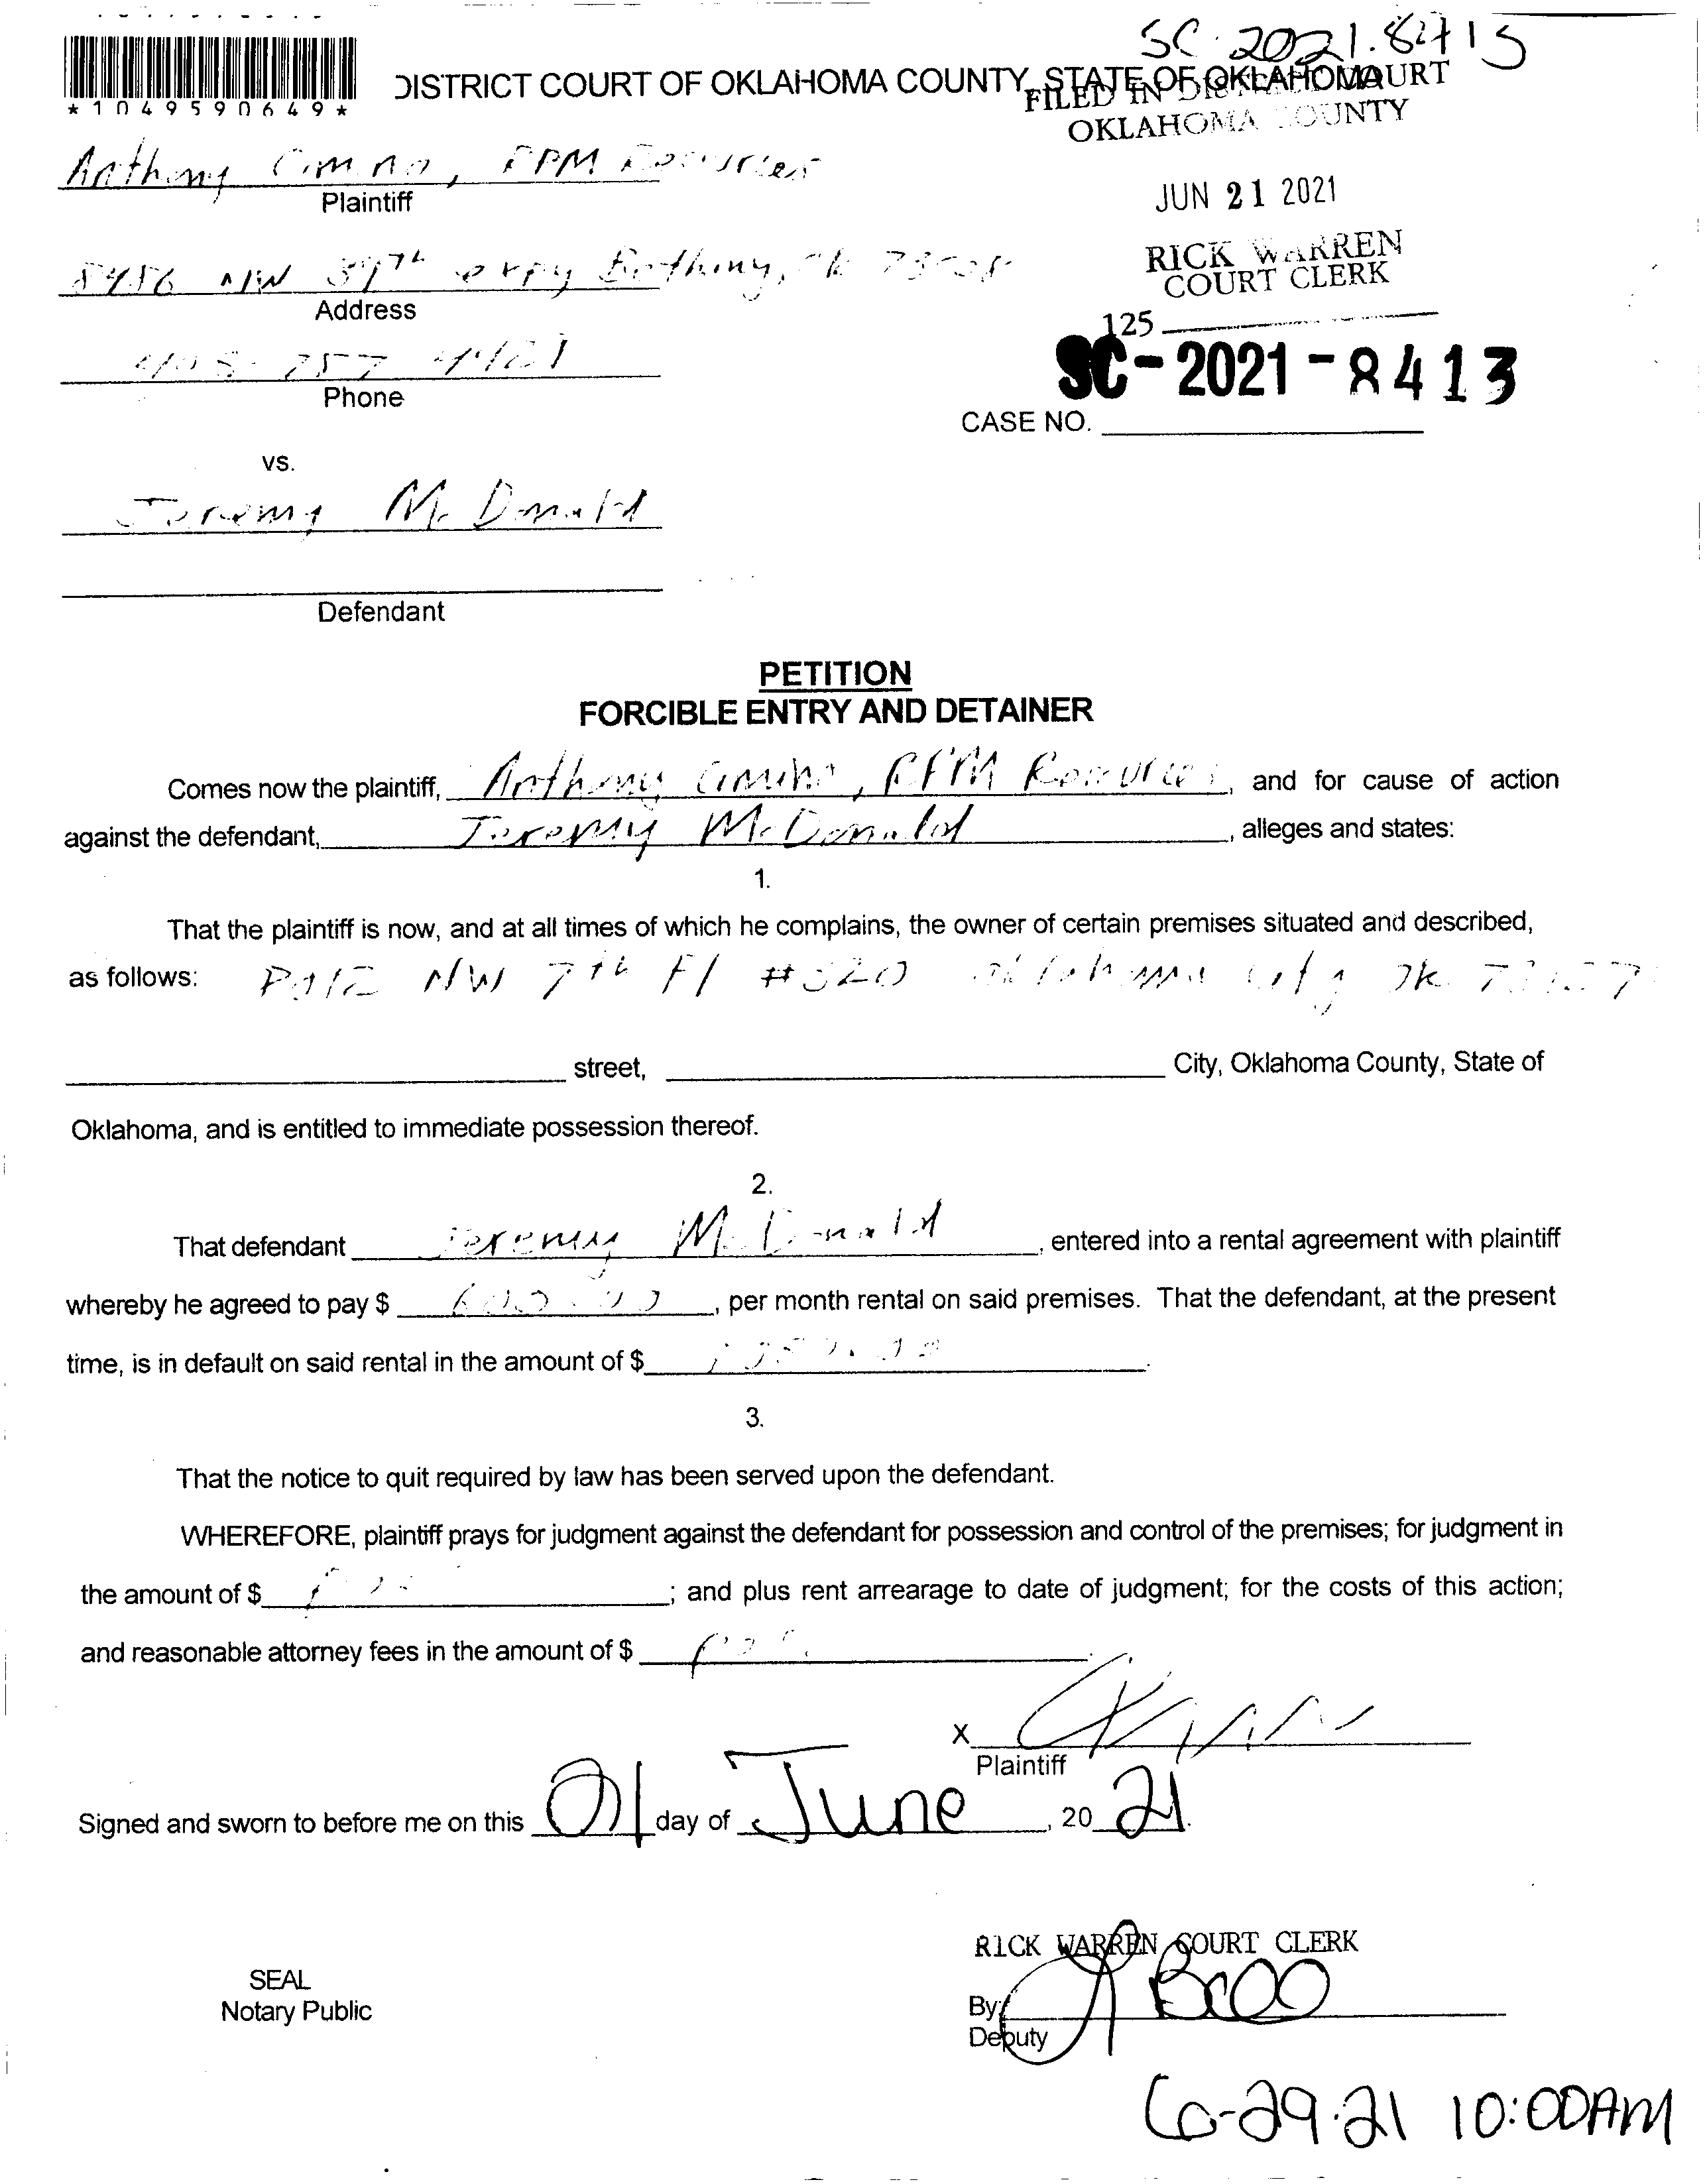 SC 2021.8413
*1049590649*
DISTRICT COURT OF OKLAHOMA COUNTY, STATE OF OKLAHOMA
FILED IN DISTRICT COURT
OKLAHOMA COUNTY
Anthony Cimino, RPM Resources
Plaintiff
JUN 21 2021
RICK WARREN
COURT CLERK
NW 39th expy Bethany, Ok
Address
125
405-
Phone
SC-2021-8413
CASE NO.
vs.
Jeremy McDonald
Defendant
PETITION
FORCIBLE ENTRY AND DETAINER
Comes now the plaintiff, Anthony Cimino, RPM Resources, and for cause of action
against the defendant, Jeremy McDonald, alleges and states:
1.
That the plaintiff is now, and at all times of which he complains, the owner of certain premises situated and described,
as follows: NW 7th #320 Oklahoma City Ok
street, City, Oklahoma County, State of
Oklahoma, and is entitled to immediate possession thereof.
2.
That defendant Jeremy McDonald, entered into a rental agreement with plaintiff
whereby he agreed to pay $ 600.00, per month rental on said premises. That the defendant, at the present
time, is in default on said rental in the amount of $
3.
That the notice to quit required by law has been served upon the defendant.
WHEREFORE, plaintiff prays for judgment against the defendant for possession and control of the premises; for judgment in
the amount of $ ; and plus rent arrearage to date of judgment; for the costs of this action;
and reasonable attorney fees in the amount of $
X
Plaintiff
Signed and sworn to before me on this 21 day of June, 20 21.
RICK WARREN COURT CLERK
SEAL
Notary Public
By:
Deputy
6-29-21 10:00AM